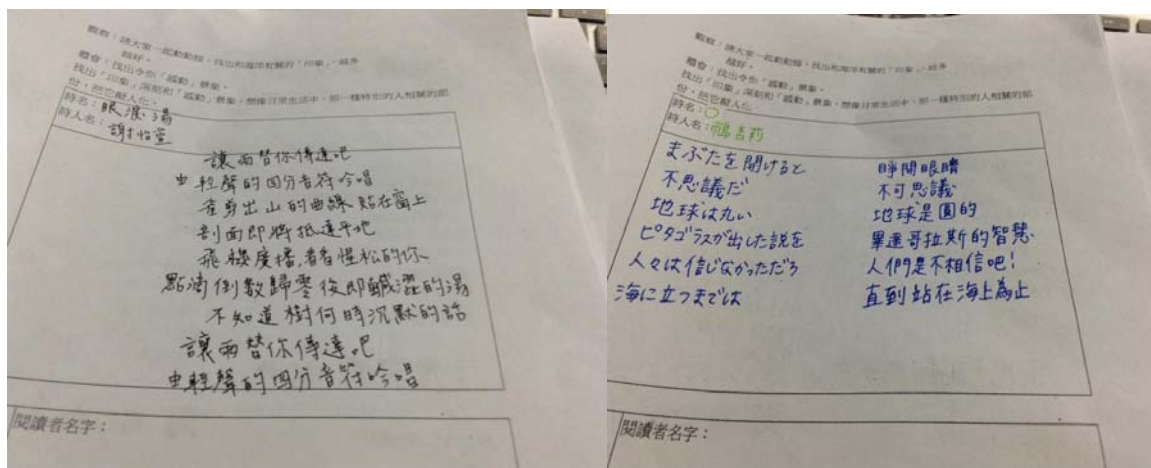 觀察：請大家一起動動腦，找出和海洋有關的「印象」，越多
越好。
體會：找出令你「感動」景象。
找出「印象」深刻和「感動」景象，想像日常生活中，那一種特別的人相關的部
份，把它擬人化。
詩名：眼淚湯
詩人名：謝怡萱
讓雨替你傳達吧
由輕聲的四分音符吟唱
在剪出山的曲線 貼在窗上
剖面即將抵達平地
飛機廣播，看看惺忪的你
點滴倒數歸零後即鹹澀的湯
不知道 樹何時沉默的話
讓雨替你傳達吧
由輕聲的四分音符吟唱
閱讀者名字：
觀察：請大家一起動動腦，找出和海洋有關的「印象」，越多
越好。
體會：找出令你「感動」景象。
找出「印象」深刻和「感動」景象，想像日常生活中，那一種特別的人相關的部
份，把它擬人化。
詩名：○
詩人名：鴫吉莉
まぶたを開けると
不思議だ
地球は丸い
ピタゴラスが出した説を
人々は信じなかっただろ
海に立つまでは
睜開眼睛
不可思議
地球是圓的
畢達哥拉斯的智慧
人們是不相信吧！
直到站在海上為止
閱讀者名字：